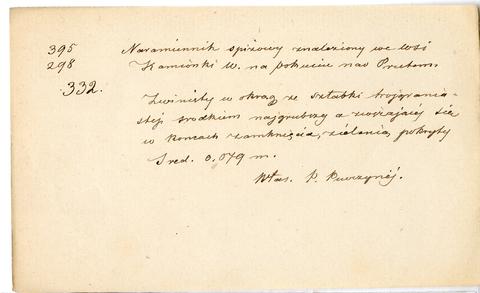 395 Naramiennik spiżowy znaleziony we wsi
298 Kamionki W. na pokuciu nad Prutem.
332.
Zwinięty w okrąg ze sztabki trójgrania-
stéj środkiem najgrubszy a zwężającéj się
w końcach zamknięcia, zielenią pokryty
Śred. 0.079 m.
Włas. P.